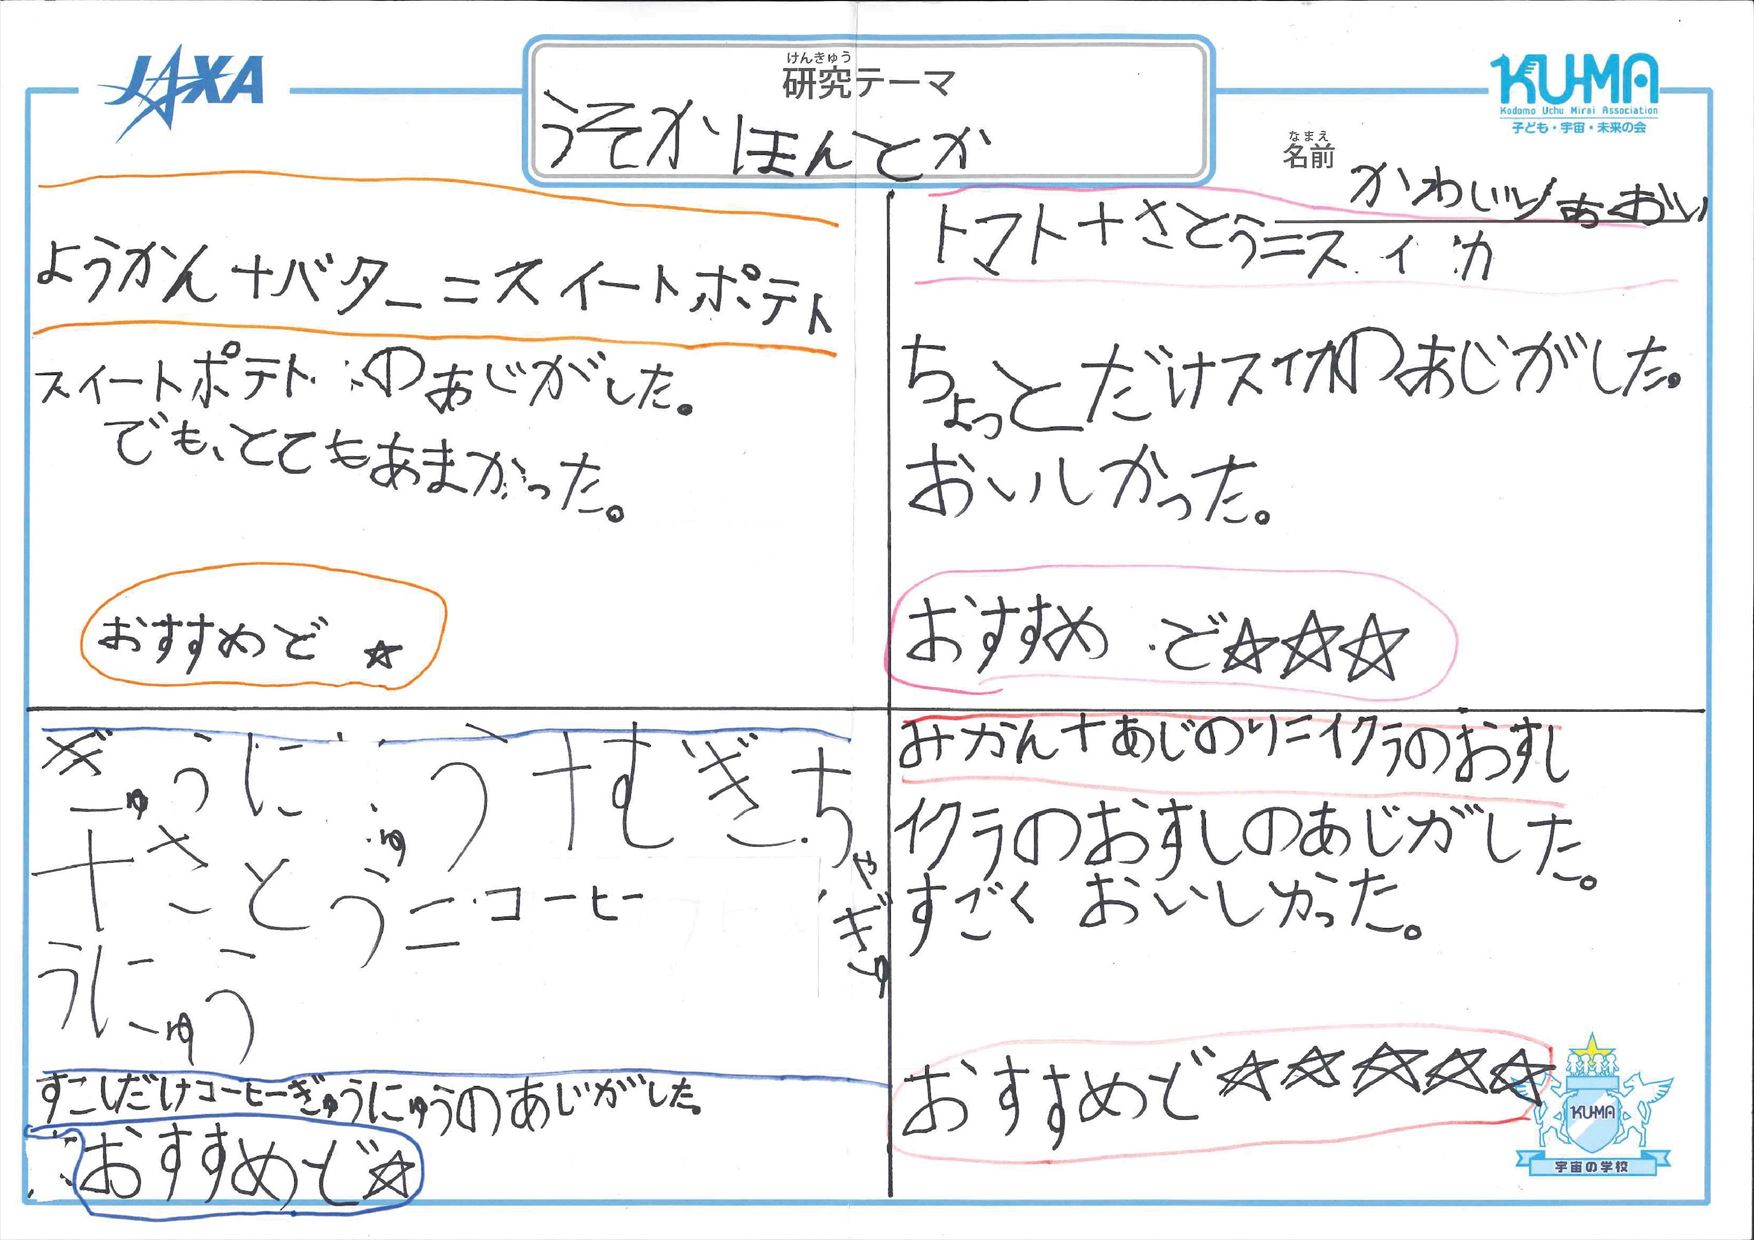 JAXA
けんきゅう
研究テーマ
うそかほんとか
KU-MA
Kodomo Uchu Mirai Association
子ども・宇宙・未来の会
なまえ
名前
かわい りあ おい
ようかん+バター=スイートポテト
スイートポテトのあじがした。
でも、とてもあまかった。
おすすめど ☆
トマト+さとう=スイカ
ちょっとだけスイカのあじがした。
おいしかった。
おすすめど☆☆☆
ぎゅうにゅう+むぎちゃ
+さとう=コーヒーぎゅ
うにゅう
すこしだけコーヒーぎゅうにゅうのあじがした。
おすすめど☆
みかん+あじのり=イクラのおすし
イクラのおすしのあじがした。
すごくおいしかった。
おすすめど☆☆☆☆☆
KUMA
宇宙の学校